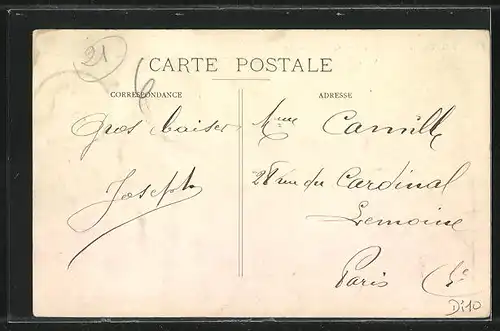 21
6
CARTE POSTALE
CORRESPONDANCE
ADRESSE
Gros baiser
Joseph
Mme Camille
28 rue du Cardinal
Lemoine
Paris
Di10